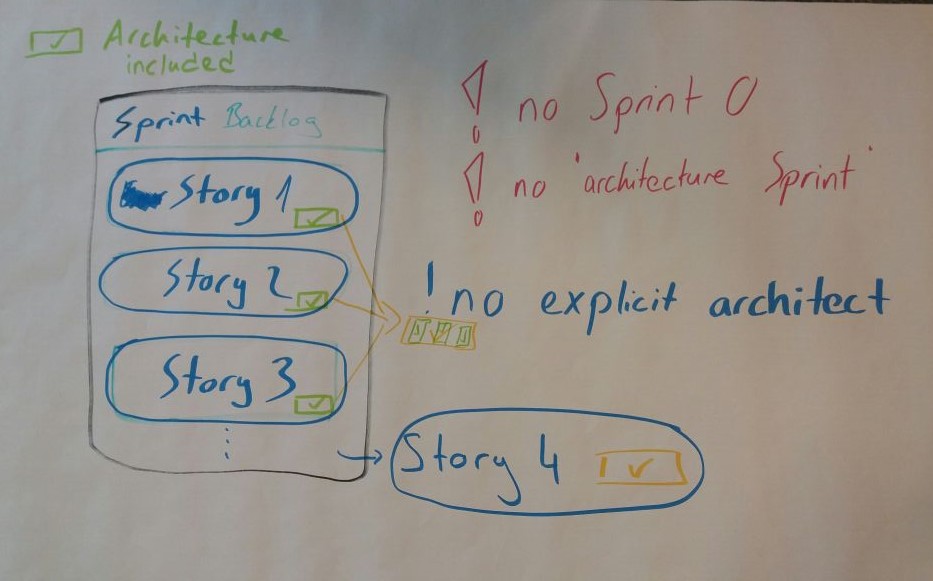 Architecture
included
Sprint Backlog
Story 1
Story 2
Story 3
Story 4
! no Sprint 0
! no "architecture Sprint"
! no explicit architect